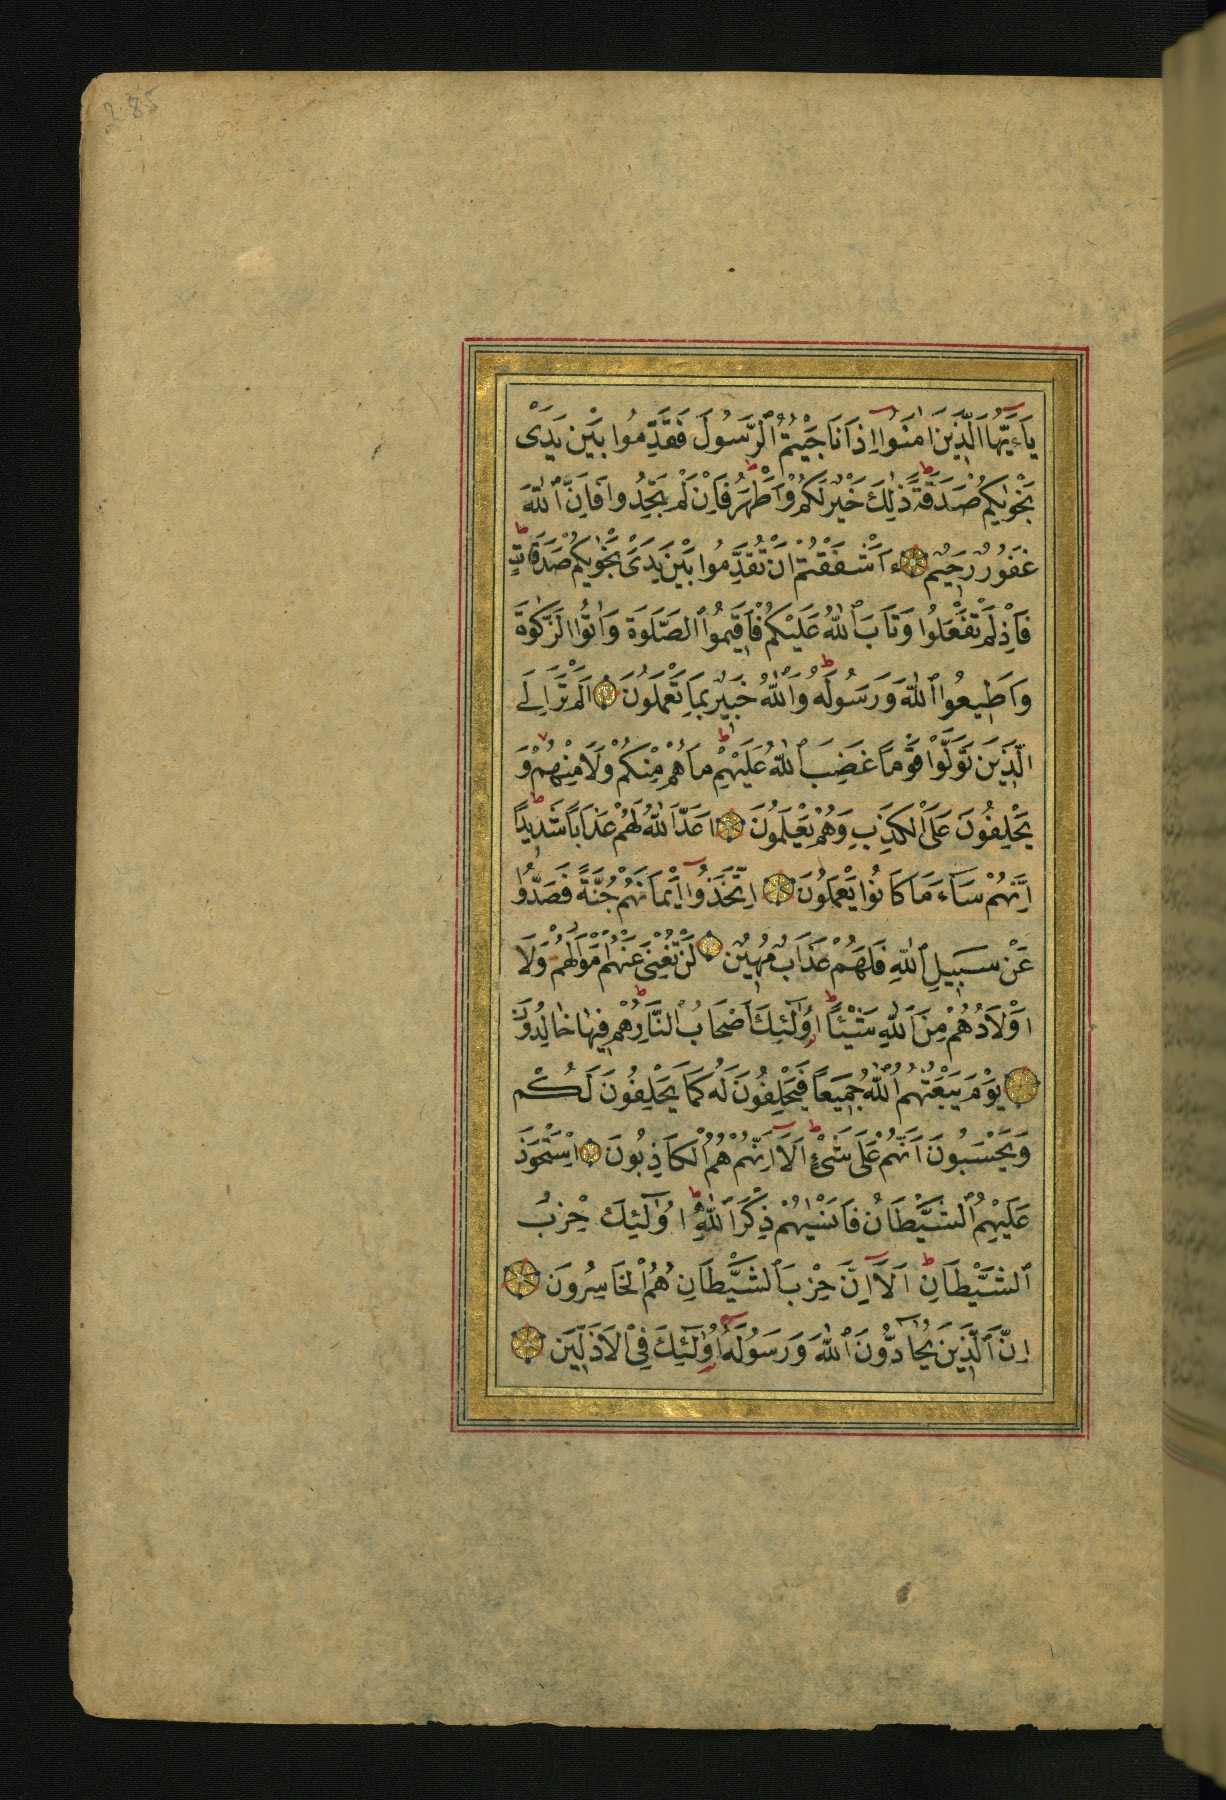 285
يَا ءَيُّهَا الَّذِينَ اٰمَنُوا اِذَا نَاجَيْتُمُ الرَّسُولَ فَقَدِّمُوا بَيْنَ يَدَىْ
نَجْوٰيكُمْ صَدَقَةً ذٰلِكَ خَيْرٌ لَكُمْ وَاَطْهَرُ فَاِنْ لَمْ تَجِدُوا فَاِنَّ اللّٰهَ
غَفُورٌ رَحِيمٌ ءَاَشْفَقْتُمْ اَنْ تُقَدِّمُوا بَيْنَ يَدَىْ نَجْوٰيكُمْ صَدَقَاتٍ
فَاِذْ لَمْ تَفْعَلُوا وَتَابَ اللّٰهُ عَلَيْكُمْ فَاَقِيمُوا الصَّلٰوةَ وَاٰتُوا الزَّكٰوةَ
وَاَطِيعُوا اللّٰهَ وَرَسُولَهُ وَاللّٰهُ خَبِيرٌ بِمَا تَعْمَلُونَ اَلَمْ تَرَ اِلَى
الَّذِينَ تَوَلَّوْا قَوْمًا غَضِبَ اللّٰهُ عَلَيْهِمْ مَا هُمْ مِنْكُمْ وَلَا مِنْهُمْ وَ
يَحْلِفُونَ عَلَى الْكَذِبِ وَهُمْ يَعْلَمُونَ اَعَدَّ اللّٰهُ لَهُمْ عَذَابًا شَدِيدًا
اِنَّهُمْ سَآءَ مَا كَانُوا يَعْمَلُونَ اِتَّخَذُوا اَيْمَانَهُمْ جُنَّةً فَصَدُّوا
عَنْ سَبِيلِ اللّٰهِ فَلَهُمْ عَذَابٌ مُهِينٌ لَنْ تُغْنِىَ عَنْهُمْ اَمْوَالُهُمْ وَلَا
اَوْلَادُهُمْ مِنَ اللّٰهِ شَيْئًا اُولٰٓئِكَ اَصْحَابُ النَّارِ هُمْ فِيهَا خَالِدُونَ
يَوْمَ يَبْعَثُهُمُ اللّٰهُ جَمِيعًا فَيَحْلِفُونَ لَهُ كَمَا يَحْلِفُونَ لَكُمْ
وَيَحْسَبُونَ اَنَّهُمْ عَلَى شَىْءٍ اَلَا اِنَّهُمْ هُمُ الْكَاذِبُونَ اِسْتَحْوَذَ
عَلَيْهِمُ الشَّيْطَانُ فَاَنْسٰيهُمْ ذِكْرَ اللّٰهِ اُولٰٓئِكَ حِزْبُ
الشَّيْطَانِ اَلَا اِنَّ حِزْبَ الشَّيْطَانِ هُمُ الْخَاسِرُونَ
اِنَّ الَّذِينَ يُحَادُّونَ اللّٰهَ وَرَسُولَهُ اُولٰٓئِكَ فِى الْاَذَلِّينَ